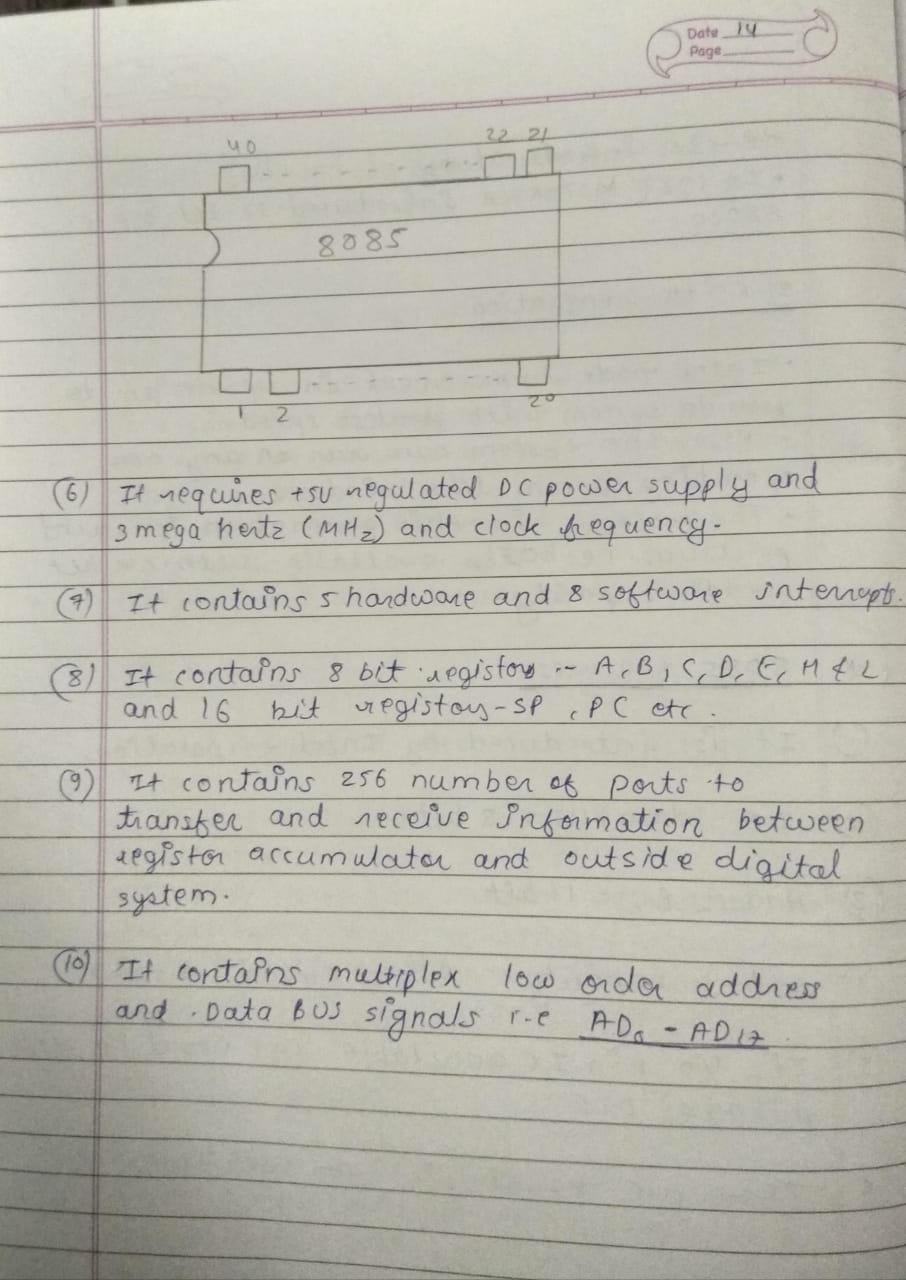 Date 14
Page
40 22 21
8085
1 2 20
(6) It requires +5V regulated DC power supply and
3 mega hertz (MHz) and clock frequency.
(7) It contains 5 hardware and 8 software interrupts.
(8) It contains 8 bit registors :- A, B, C, D, E, H & L
and 16 bit registors - SP, PC etc.
(9) It contains 256 number of ports to
transfer and receive information between
registor accumulator and outside digital
system.
(10) It contains multiplex low order address
and Data BUS signals i.e AD0 - AD17.